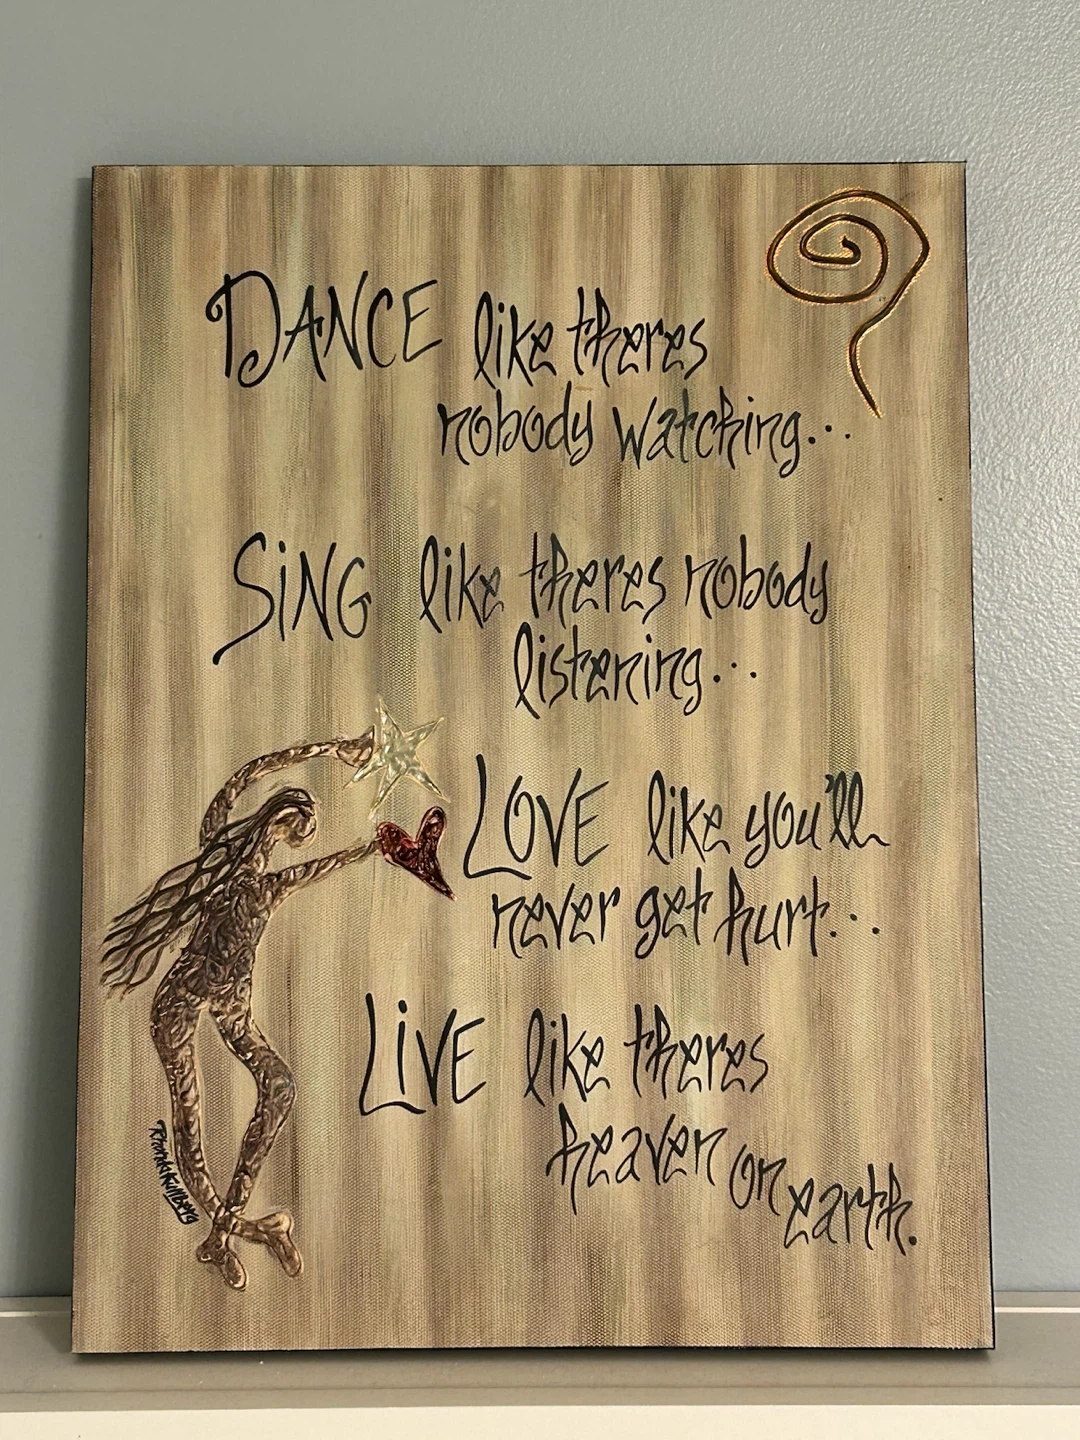 DANCE like theres
nobody watching...
SiNG like theres nobody
listening...
LOVE like you'll
never get hurt...
LiVE like theres
heaven on earth.